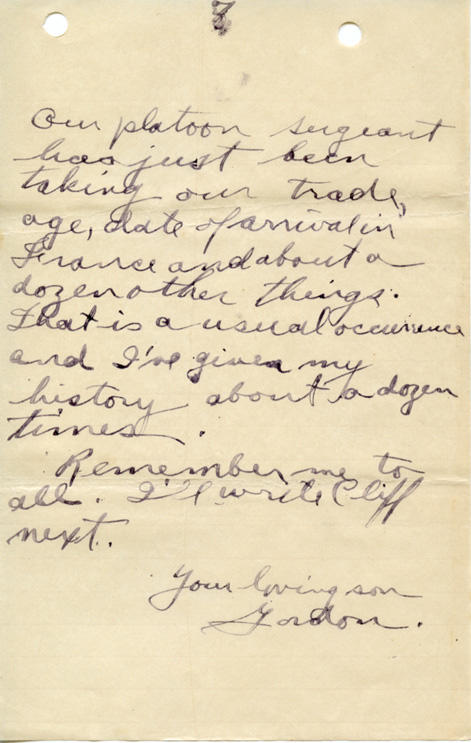 7
Our platoon sergeant
has just been
taking our trade,
age, date of arrival in
France and about a
dozen other things.
That is a usual occurrence
and I've given my
history about a dozen
times.
Remember me to
all. I'll write Cliff
next.
Your loving son
Gordon.